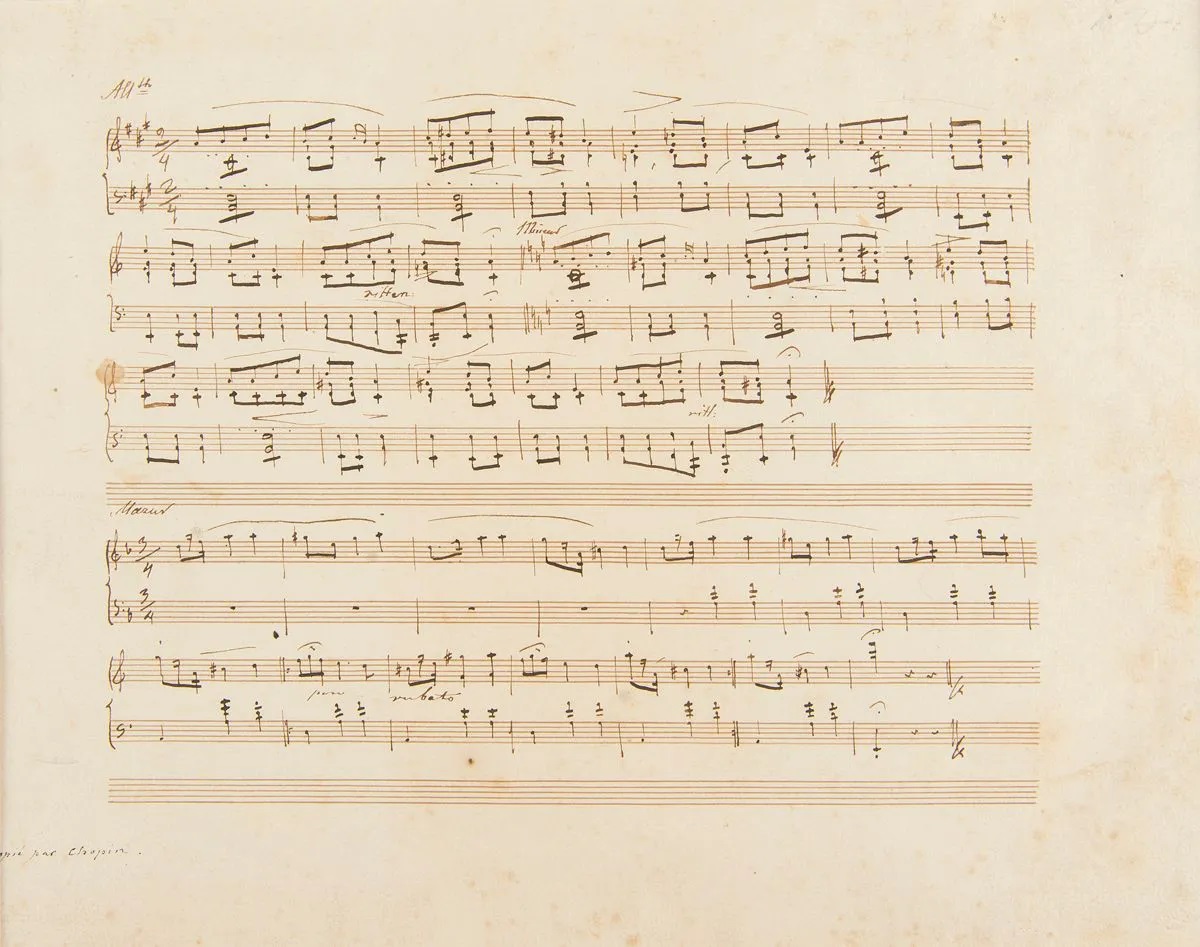 All<sup>tto</sup>
2/4
2/4
Mineur
ritten.
ritt:
Mazur
3/4
3/4
poco rubato
copié par Chopin.